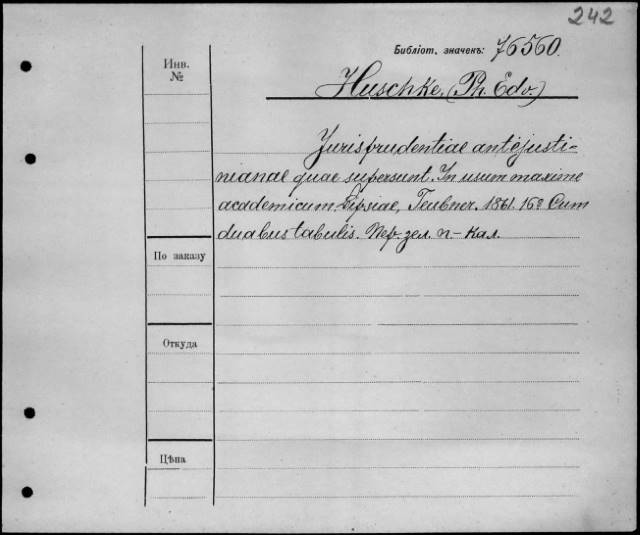 242
Библіот. значекъ: 76560.
Инв.
№
Huschke. (Ph. Edv.)
Jurisprudentiae antejusti-
nianae quae supersunt. In usum maxime
academicum. Lipsiae, Teubner. 1861. 16º Cum
duabus tabulis. Пер. зел. п-кал.
По заказу
Откуда
Цѣна